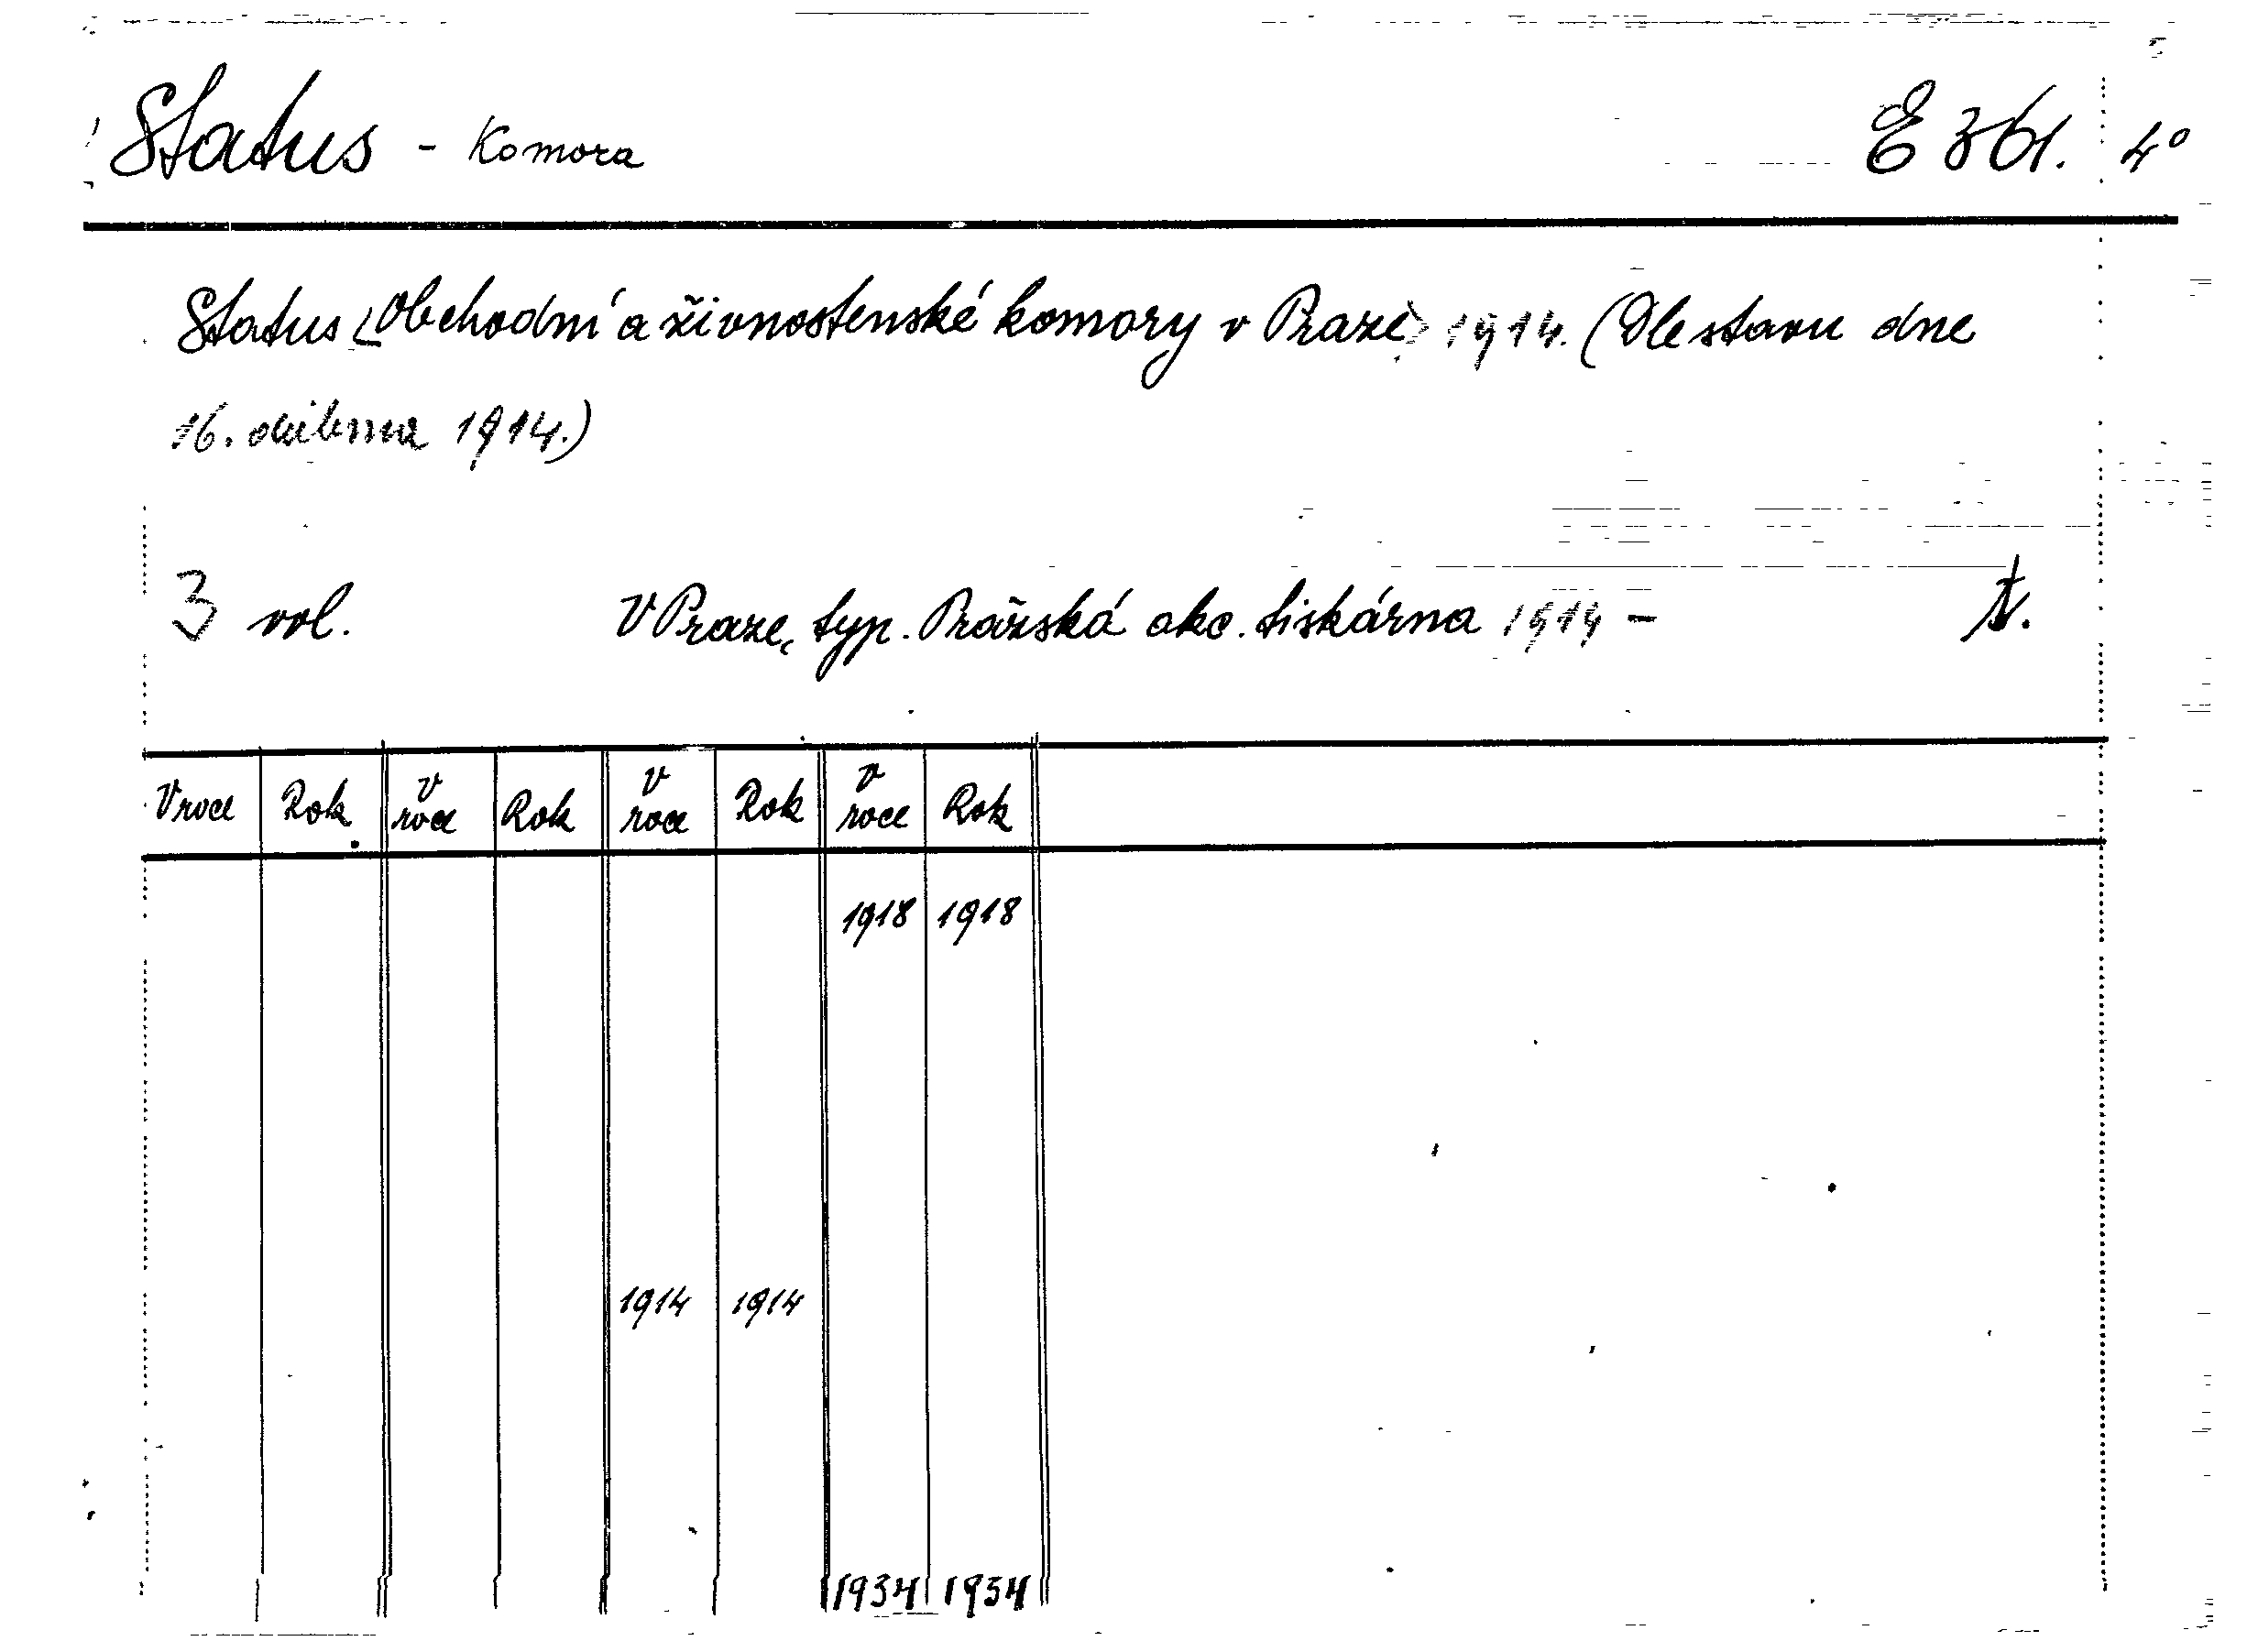 Status - Komora E 361. 4°
Status <Obchodní a živnostenské komory v Praze> 1914. (Dle stavu dne
16. 1914.)
3 vol. V Praze, typ. Pražská akc. tiskárna 1914 -
V roce Rok v roce Rok v roce Rok v roce Rok
1918 1918
1914 1914
1934 1934